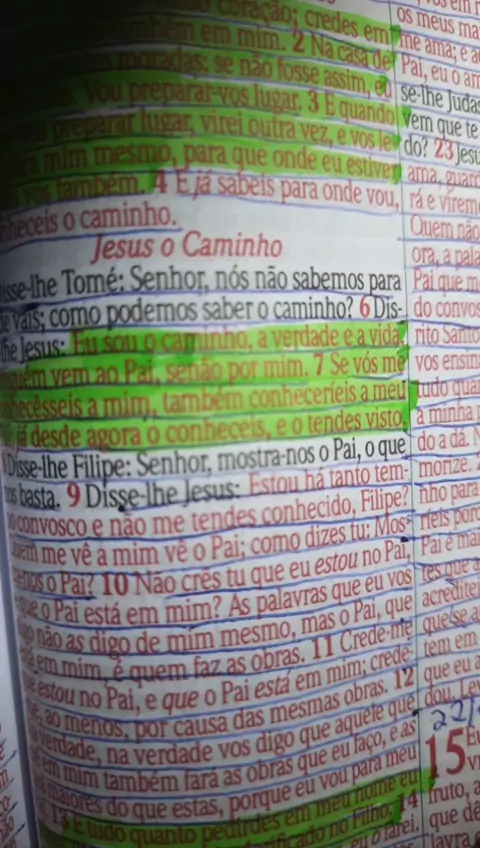 coração; credes em
bém em mim. 2 Na casa de
moradas; se não fosse assim, eu
Vou preparar-vos lugar. 3 E quando
preparar lugar, virei outra vez, e vos le-
mim mesmo, para que onde eu estiver
vos também. 4 E já sabeis para onde vou,
nheceis o caminho.
Jesus o Caminho
isse-lhe Tomé: Senhor, nós não sabemos para
e vais; como podemos saber o caminho? 6 Dis-
lhe Jesus: Eu sou o caminho, a verdade e a vida.
guém vem ao Pai, senão por mim. 7 Se vós me
nhecêsseis a mim, também conheceríeis a meu
já desde agora o conheceis, e o tendes visto.
Disse-lhe Filipe: Senhor, mostra-nos o Pai, o que
nos basta. 9 Disse-lhe Jesus: Estou há tanto tem-
convosco e não me tendes conhecido, Filipe?
uem me vê a mim vê o Pai; como dizes tu: Mos-
o Pai? 10 Não crês tu que eu estou no Pai,
que o Pai está em mim? As palavras que eu vos
não as digo de mim mesmo, mas o Pai, que
em mim, é quem faz as obras. 11 Crede-me
estou no Pai, e que o Pai está em mim; crede-
ao menos, por causa das mesmas obras. 12
verdade, na verdade vos digo que aquele que
em mim também fará as obras que eu faço, e as
maiores do que estas, porque eu vou para meu
13 E tudo quanto pedirdes em meu nome eu
ficado no Filho. 14
eu o farei.
os meus ma
me ama; e a
Pai, eu o am
se-lhe Judas
vem que te
do? 23 Jesu
ama, guard
rá e virem
Quem não
ora, a pala
Pai que m
do convos
rito Santo
vos ensina
tudo quan
a minha p
do a dá. N
morize.
nho para
ríeis porq
Pai é mai
tes que a
acredite
que se a
tem em
que eu a
dou. Lev
22/
15 Eu
fruto, a
que dê
lavra